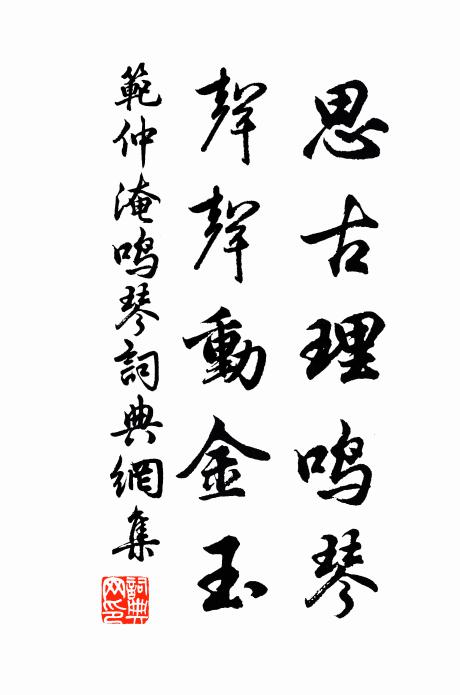 思古理鸣琴
聲聲動金玉
範仲淹鸣琴詞典網集
詞典网印